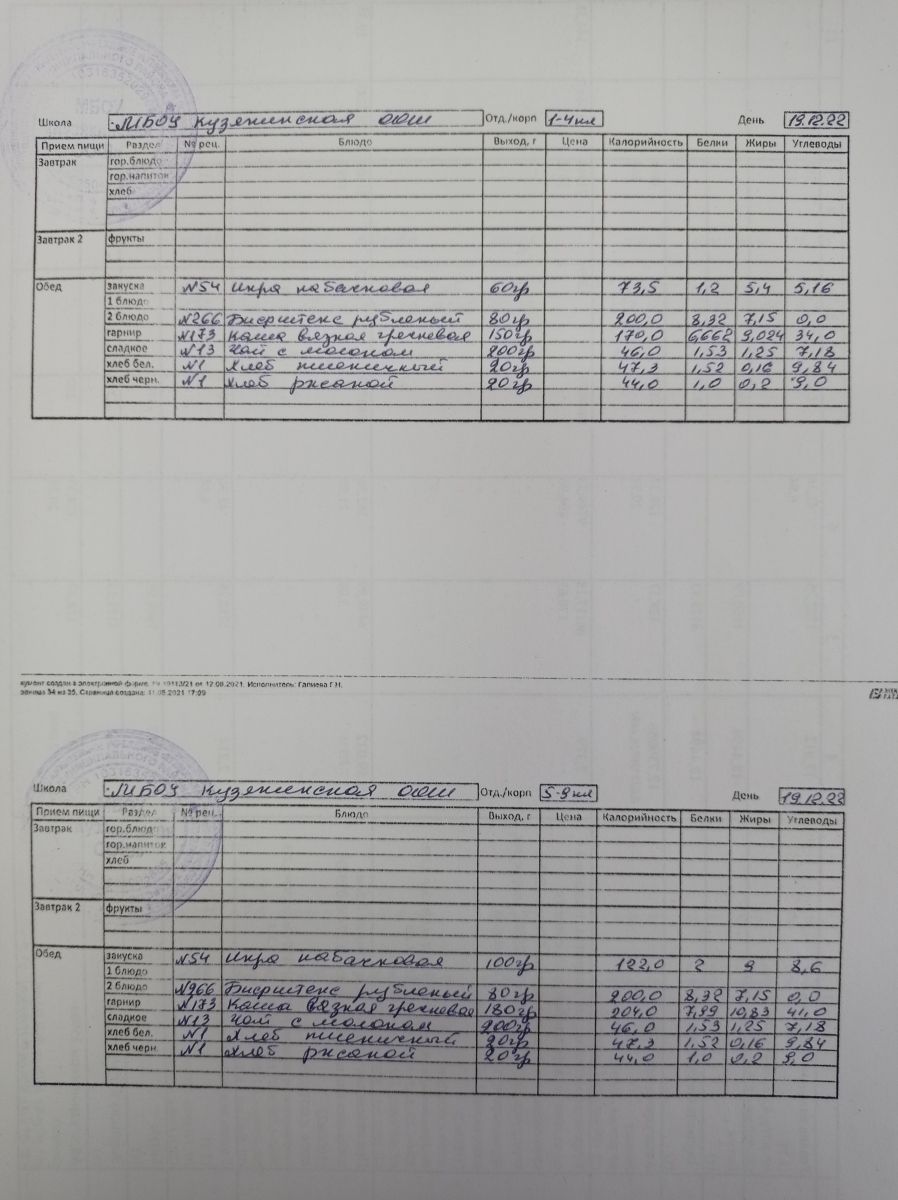 Школа МБОУ Кузякинская ООШ Отд./корп 1-4 кл День 19.12.22
Прием пищи Раздел № рец. Блюдо Выход, г Цена Калорийность Белки Жиры Углеводы
Завтрак гор.блюдо
гор.напиток
хлеб
Завтрак 2 фрукты
Обед закуска №54 Икра кабачковая 60гр 73,5 1,2 5,4 5,16
1 блюдо
2 блюдо №266 Бифштекс рубленый 80гр 200,0 8,32 7,15 0,0
гарнир №173 Каша вязкая гречневая 150гр 170,0 6,662 9,024 34,0
сладкое №13 Чай с молоком 200гр 46,0 1,53 1,25 7,18
хлеб бел. №1 Хлеб пшеничный 20гр 47,3 1,52 0,16 9,84
хлеб черн. №1 Хлеб ржаной 20гр 44,0 1,0 0,2 9,0
кумент создан в электронной форме. от 12.08.2021. Исполнитель: Галиева Г.Н.
раница 34 из 35. Страница создана: 11.08.2021 17:09
Школа МБОУ Кузякинская ООШ Отд./корп 5-9 кл День 19.12.22
Прием пищи Раздел № рец. Блюдо Выход, г Цена Калорийность Белки Жиры Углеводы
Завтрак гор.блюдо
гор.напиток
хлеб
Завтрак 2 фрукты
Обед закуска №54 Икра кабачковая 100гр 122,0 2 9 8,6
1 блюдо
2 блюдо №266 Бифштекс рубленый 80гр 200,0 8,32 7,15 0,0
гарнир №173 Каша вязкая гречневая 180гр 204,0 7,99 10,83 41,0
сладкое №13 Чай с молоком 200гр 46,0 1,53 1,25 7,18
хлеб бел. №1 Хлеб пшеничный 20гр 47,3 1,52 0,16 9,84
хлеб черн. №1 Хлеб ржаной 20гр 44,0 1,0 0,2 9,0